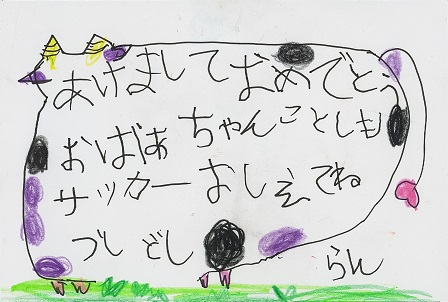 あけまして おめでとう
おばあちゃんことしも
サッカーおしえてね
うし どし
らん